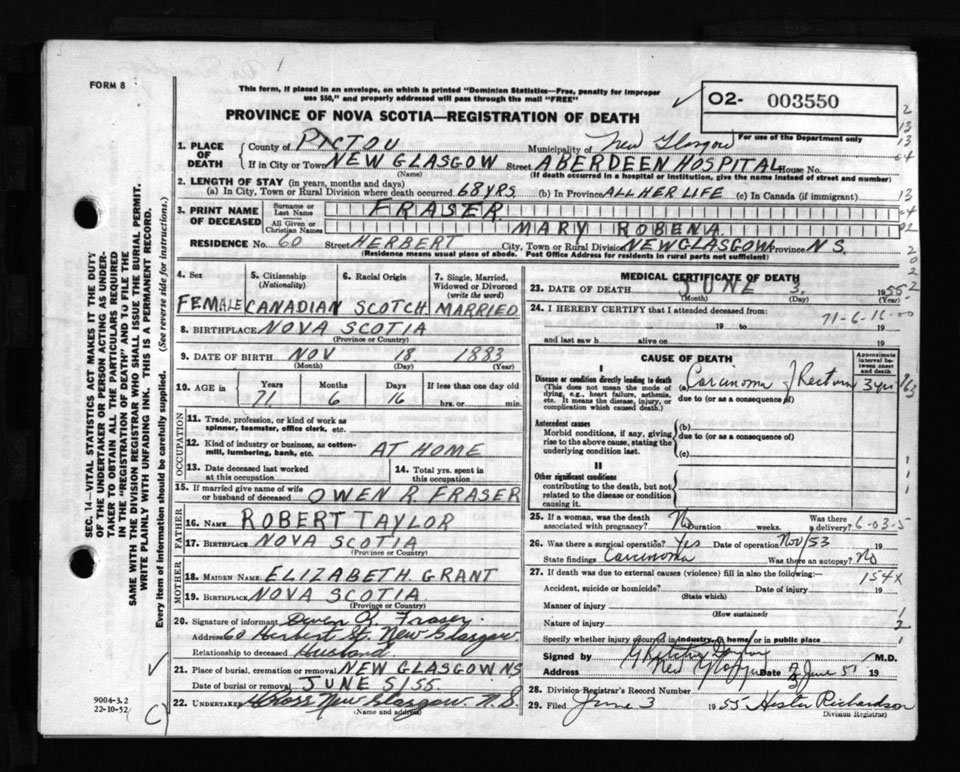 FORM 8
This form, if placed in an envelope, on which is printed "Dominion Statistics—Free, penalty for improper
use $50," and properly addressed will pass through the mail "FREE"
O2- 003550
For use of the Department only
PROVINCE OF NOVA SCOTIA—REGISTRATION OF DEATH
1. PLACE OF DEATH
County of PICTOU Municipality of New Glasgow
If in City or Town NEW GLASGOW Street ABERDEEN HOSPITAL House No.
(Name) (If death occurred in a hospital or institution, give the name instead of street and number)
2. LENGTH OF STAY (in years, months and days)
(a) In City, Town or Rural Division where death occurred 68 YRS. (b) In Province ALL HER LIFE (c) In Canada (if immigrant)
3. PRINT NAME OF DECEASED
Surname or Last Name FRASER
All Given or Christian Names MARY ROBENA
RESIDENCE No. 60 Street HERBERT City, Town or Rural Division NEW GLASGOW Province N S.
(Residence means usual place of abode. Post Office Address for residents in rural parts not sufficient)
4. Sex FEMALE
5. Citizenship (Nationality) CANADIAN
6. Racial Origin SCOTCH
7. Single, Married, Widowed or Divorced (write the word) MARRIED
8. BIRTHPLACE NOVA SCOTIA
(Province or Country)
9. DATE OF BIRTH NOV 18 1883
(Month) (Day) (Year)
10. AGE in Years Months Days If less than one day old
71 6 16 hrs. or min.
OCCUPATION
11. Trade, profession, or kind of work as spinner, teamster, office clerk, etc.
12. Kind of industry or business, as cotton-mill, lumbering, bank, etc. AT HOME
13. Date deceased last worked at this occupation
14. Total yrs. spent in this occupation
15. If married give name of wife or husband of deceased OWEN R FRASER
FATHER
16. NAME ROBERT TAYLOR
17. BIRTHPLACE NOVA SCOTIA
(Province or Country)
MOTHER
18. MAIDEN NAME ELIZABETH GRANT
19. BIRTHPLACE NOVA SCOTIA
(Province or Country)
20. Signature of informant Owen R. Fraser
Address 60 Herbert St. New Glasgow
Relationship to deceased Husband
21. Place of burial, cremation or removal NEW GLASGOW NS
Date of burial or removal JUNE 5/55
22. UNDERTAKER New Glasgow. N.S.
(Name and address)
MEDICAL CERTIFICATE OF DEATH
23. DATE OF DEATH JUNE 3. 1955
(Month) (Day) (Year)
24. I HEREBY CERTIFY that I attended deceased from:
71-6-16-00
19 to 19
and last saw h alive on 19
CAUSE OF DEATH
Approximate interval between onset and death
I
Disease or condition directly leading to death
(This does not mean the mode of dying, e.g., heart failure, asthenia, etc. It means the disease, injury, or complication which caused death.)
(a) Carcinoma of Rectum 3 yrs
due to (or as a consequence of)
Antecedent causes
Morbid conditions, if any, giving rise to the above cause, stating the underlying condition last.
(b)
due to (or as a consequence of)
(c)
II
Other significant conditions
contributing to the death, but not related to the disease or condition causing it.
25. If a woman, was the death associated with pregnancy? No Duration weeks. Was there a delivery? 6-03-5
26. Was there a surgical operation? Yes Date of operation Nov/53 19
State findings Carcinoma Was there an autopsy? No
27. If death was due to external causes (violence) fill in also the following:—
154X
Accident, suicide or homicide? Date of injury 19
(State which)
Manner of injury
(How sustained)
Nature of injury
Specify whether injury occured in industry, in home, or in public place
Signed by M.D.
Address New Glasgow June 19
28. Division Registrar's Record Number
29. Filed June 3 1955 Hester Richardson
Division Registrar
SEC. 14—VITAL STATISTICS ACT MAKES IT THE DUTY
OF THE UNDERTAKER OR PERSON ACTING AS UNDER-
TAKER TO OBTAIN ALL THE PARTICULARS REQUIRED
IN THE "REGISTRATION OF DEATH" AND TO FILE THE
SAME WITH THE DIVISION REGISTRAR WHO SHALL ISSUE THE BURIAL PERMIT.
WRITE PLAINLY WITH UNFADING INK. THIS IS A PERMANENT RECORD.
Every item of information should be carefully supplied. (See reverse side for instructions.)
9004-3.2
22-10-52
(C)